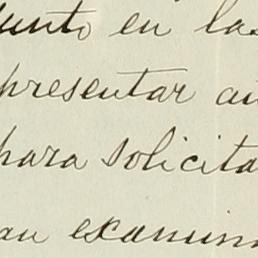 unto en las
presentar an
para solicita
an examin